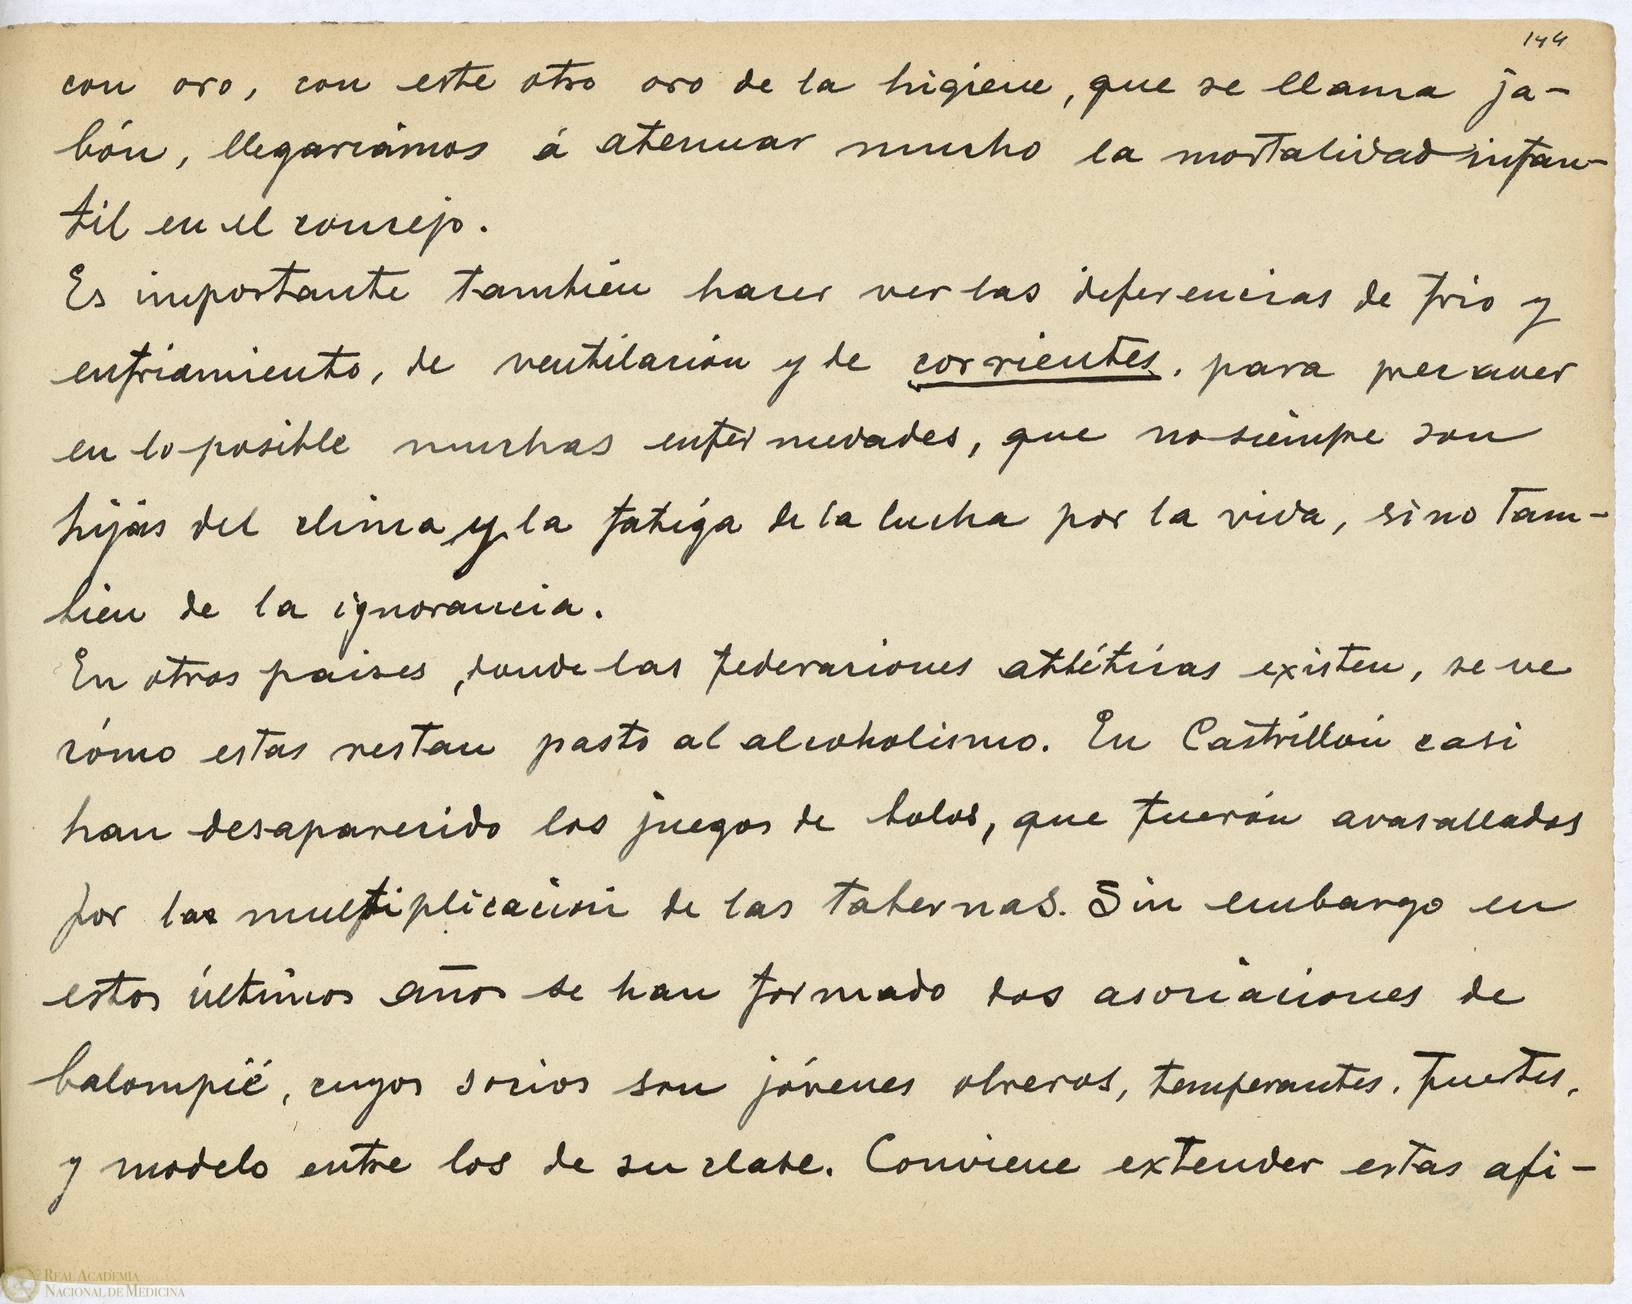 144
con oro, con este otro oro de la higiene, que se llama ja-
bón, llegariámos á atenuar mucho la mortalidad infan-
til en el concejo.
Es importante tambien hacer ver las deferencias de frio y
enfriamiento, de ventilación y de corrientes, para precaver
en lo posible muchas enfermedades, que no siempre son
hijas del clima y la fatiga de la lucha por la vida, sino tam-
bien de la ignorancia.
En otros paises, donde las federaciones atléticas existen, se ve
cómo estas restan pasto al alcoholismo. En Castrillón casi
han desaparecido los juegos de bolos, que fuerón avasallados
por la multiplicación de las tabernas. Sin embargo en
estos últimos años se han formado dos asociaciones de
balompié, cuyos socios son jóvenes obreros, temperantes, fuertes,
y modelo entre los de su clase. Conviene extender estas afi-
REAL ACADEMIA
NACIONAL DE MEDICINA